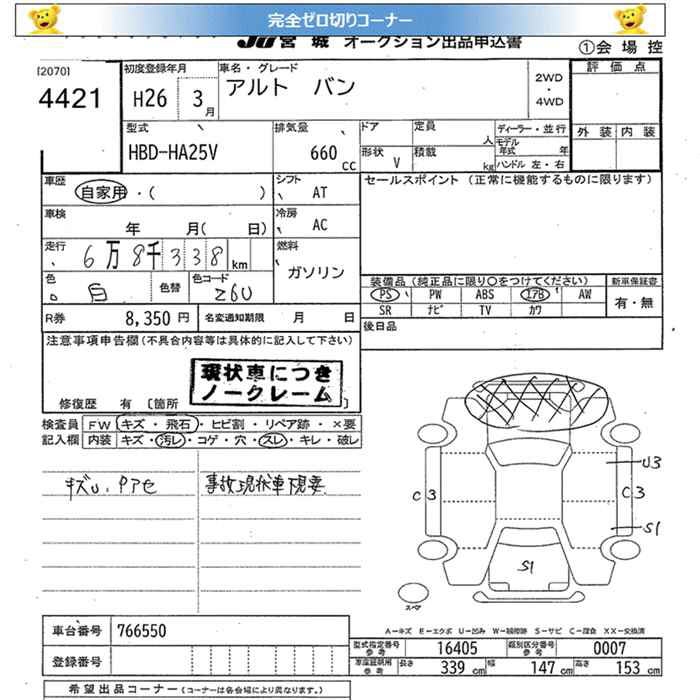 完全ゼロ切りコーナー
JU 宮 城 オークション出品申込書
①会 場 控
[2070]
4421
初度登録年月
H26 3月
車名・グレード
アルト バン
2WD
・
4WD
評 価 点
型式
HBD-HA25V
排気量
660 cc
ドア
定員 人
ディーラー・並行
モデル年式 年
外 装 内 装
形状 V
積載 kg
ハンドル 左・右
車歴
自家用・( )
シフト
AT
セールスポイント (正常に機能するものに限ります)
車検
年 月( 日)
冷房
AC
走行
6万8千338 km
燃料
ガソリン
色
白
色替
色コード
Z6U
装備品 (純正品に限り○をつけてください)
新車保証書
PS PW ABS エアB AW
有・無
SR ナビ TV カワ
R券 8,350 円
名変通知期限 月 日
後日品
注意事項申告欄 (不具合内容等は具体的に記入して下さい)
現状車につき
ノークレーム
修復歴 有 〔箇所
検査員
記入欄
FW キズ・飛石・ヒビ割・リペア跡・×要
内装 キズ・汚レ・コゲ・穴・スレ・キレ・破レ
事故現状車 現要
U3
C3
C3
S1
S1
スペア
A―キズ E―エクボ U―凹み W―補修跡 S―サビ C―腐食 XX―交換済
車台番号 766550
登録番号
型式指定番号 参考 16405
類別区分番号 参考 0007
車庫証明用 参考 長さ 339 cm 幅 147 cm 高さ 153 cm
希望出品コーナー (コーナーは各会場により異なります。)